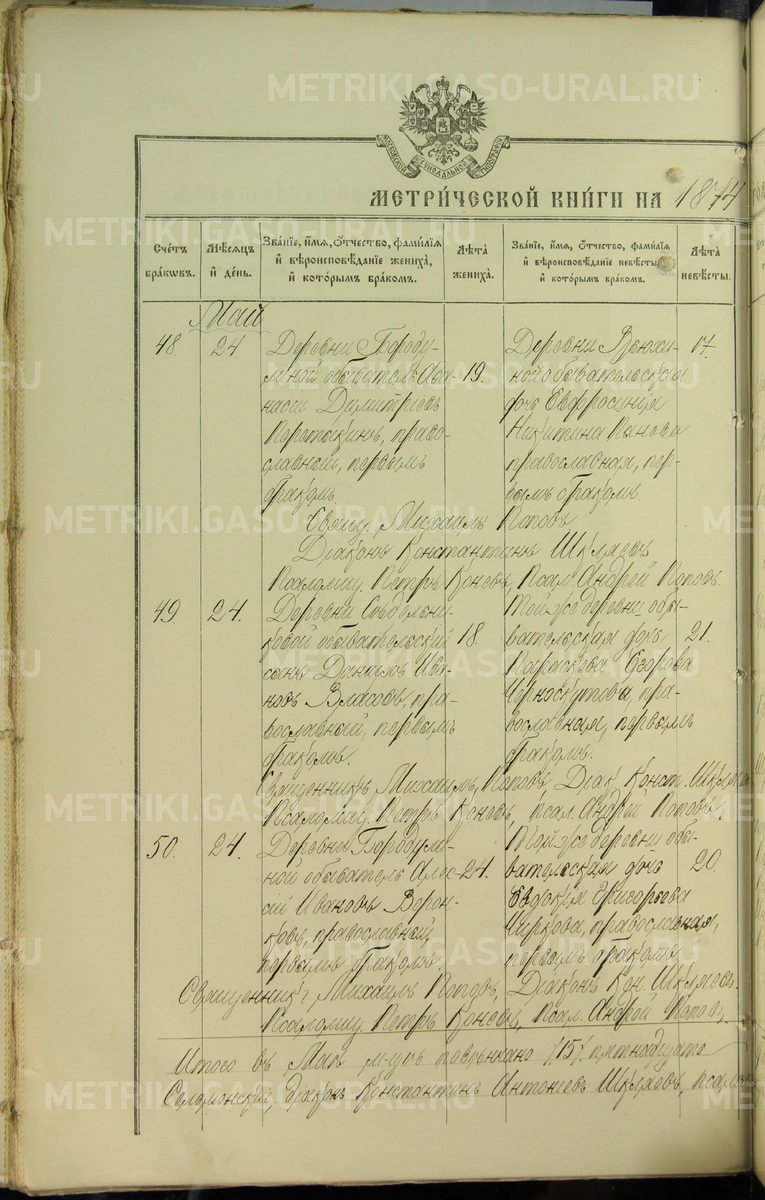 METRIKI.GASO-URAL.RU
МЕТРИ́ЧЕСКОЙ КНИ́ГИ НА 1874
Счетъ бра́ковъ.
Мѣсяцъ и҆ де́нь.
Зва́нїе, и҆́мя, ѻ҆́тчество, фами́лїя и҆ вѣроисповѣ́данїе жениха̀, и҆ кото́рымъ бра́комъ.
Лѣ́та жениха̀.
Зва́нїе, и҆́мя, ѻ҆́тчество, фами́лїя и҆ вѣроисповѣ́данїе невѣ́сты, и҆ кото́рымъ бра́комъ.
Лѣ́та невѣ́сты.
Май
48
24
Деревни Бороду-
линой обыватель Афа-
насій Димитріевъ
православный, первымъ
бракомъ
19.
Деревни
обывательская
дочь Евфросинія
Никитина
православная, пер-
вымъ бракомъ
17.
Свящ. Михаилъ Поповъ
Діаконъ Константинъ Шкляевъ
Псаломщ. Петръ Коневъ, Псал. Андрей Поповъ
49
24.
Деревни
обывательскій
сынъ Даніилъ Ива-
новъ Власовъ, пра-
вославный, первымъ
бракомъ.
18
Той же деревни обы-
вательская дочь
Параскева Егорова
Черноскутова, пра-
вославная, первымъ
бракомъ.
21.
Священникъ Михаилъ Поповъ, Діак. Конст. Шкляевъ
Псаломщ. Петръ Коневъ, псал. Андрей Поповъ
50.
24.
Деревни Бородули-
ной обыватель Алек-
сій Ивановъ Ворон-
ковъ, православный
первымъ бракомъ.
24.
Той же деревни обы-
вательская дочь
Евдокія Григорьева
Чиркова, православная,
первымъ бракомъ
20.
Священникъ Михаилъ Поповъ, Діаконъ Кон. Шкляевъ.
Псаломщ. Петръ Коневъ, Псал. Андрей Поповъ
Итого въ Маѣ м-цѣ повѣнчано /15/ пятнадцать
діаконъ Константинъ Антоніевъ Шкляевъ,